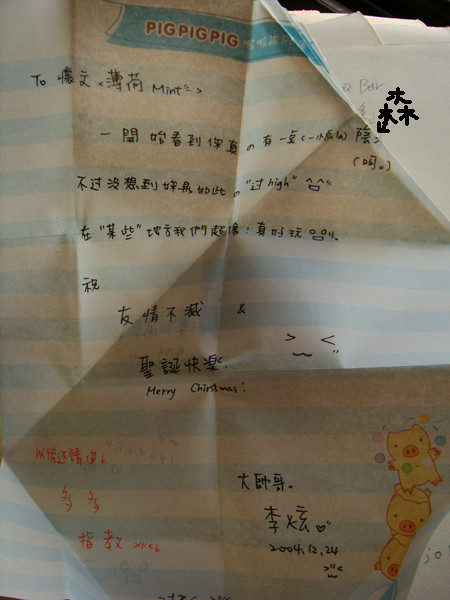 PIGPIGPIG
To 懷文<薄荷 Mint>
一開始看到你真の有一点(一点的)陰
(呵。)
不过沒想到妳是如此の"过high"
在"某些"地方我們超像:真好玩
祝
友情不減 &
聖誕快樂.
Merry Chirstmas!
以後还請你
多多
指教
大帥哥。
李炫
2004.12.24
Bear
森